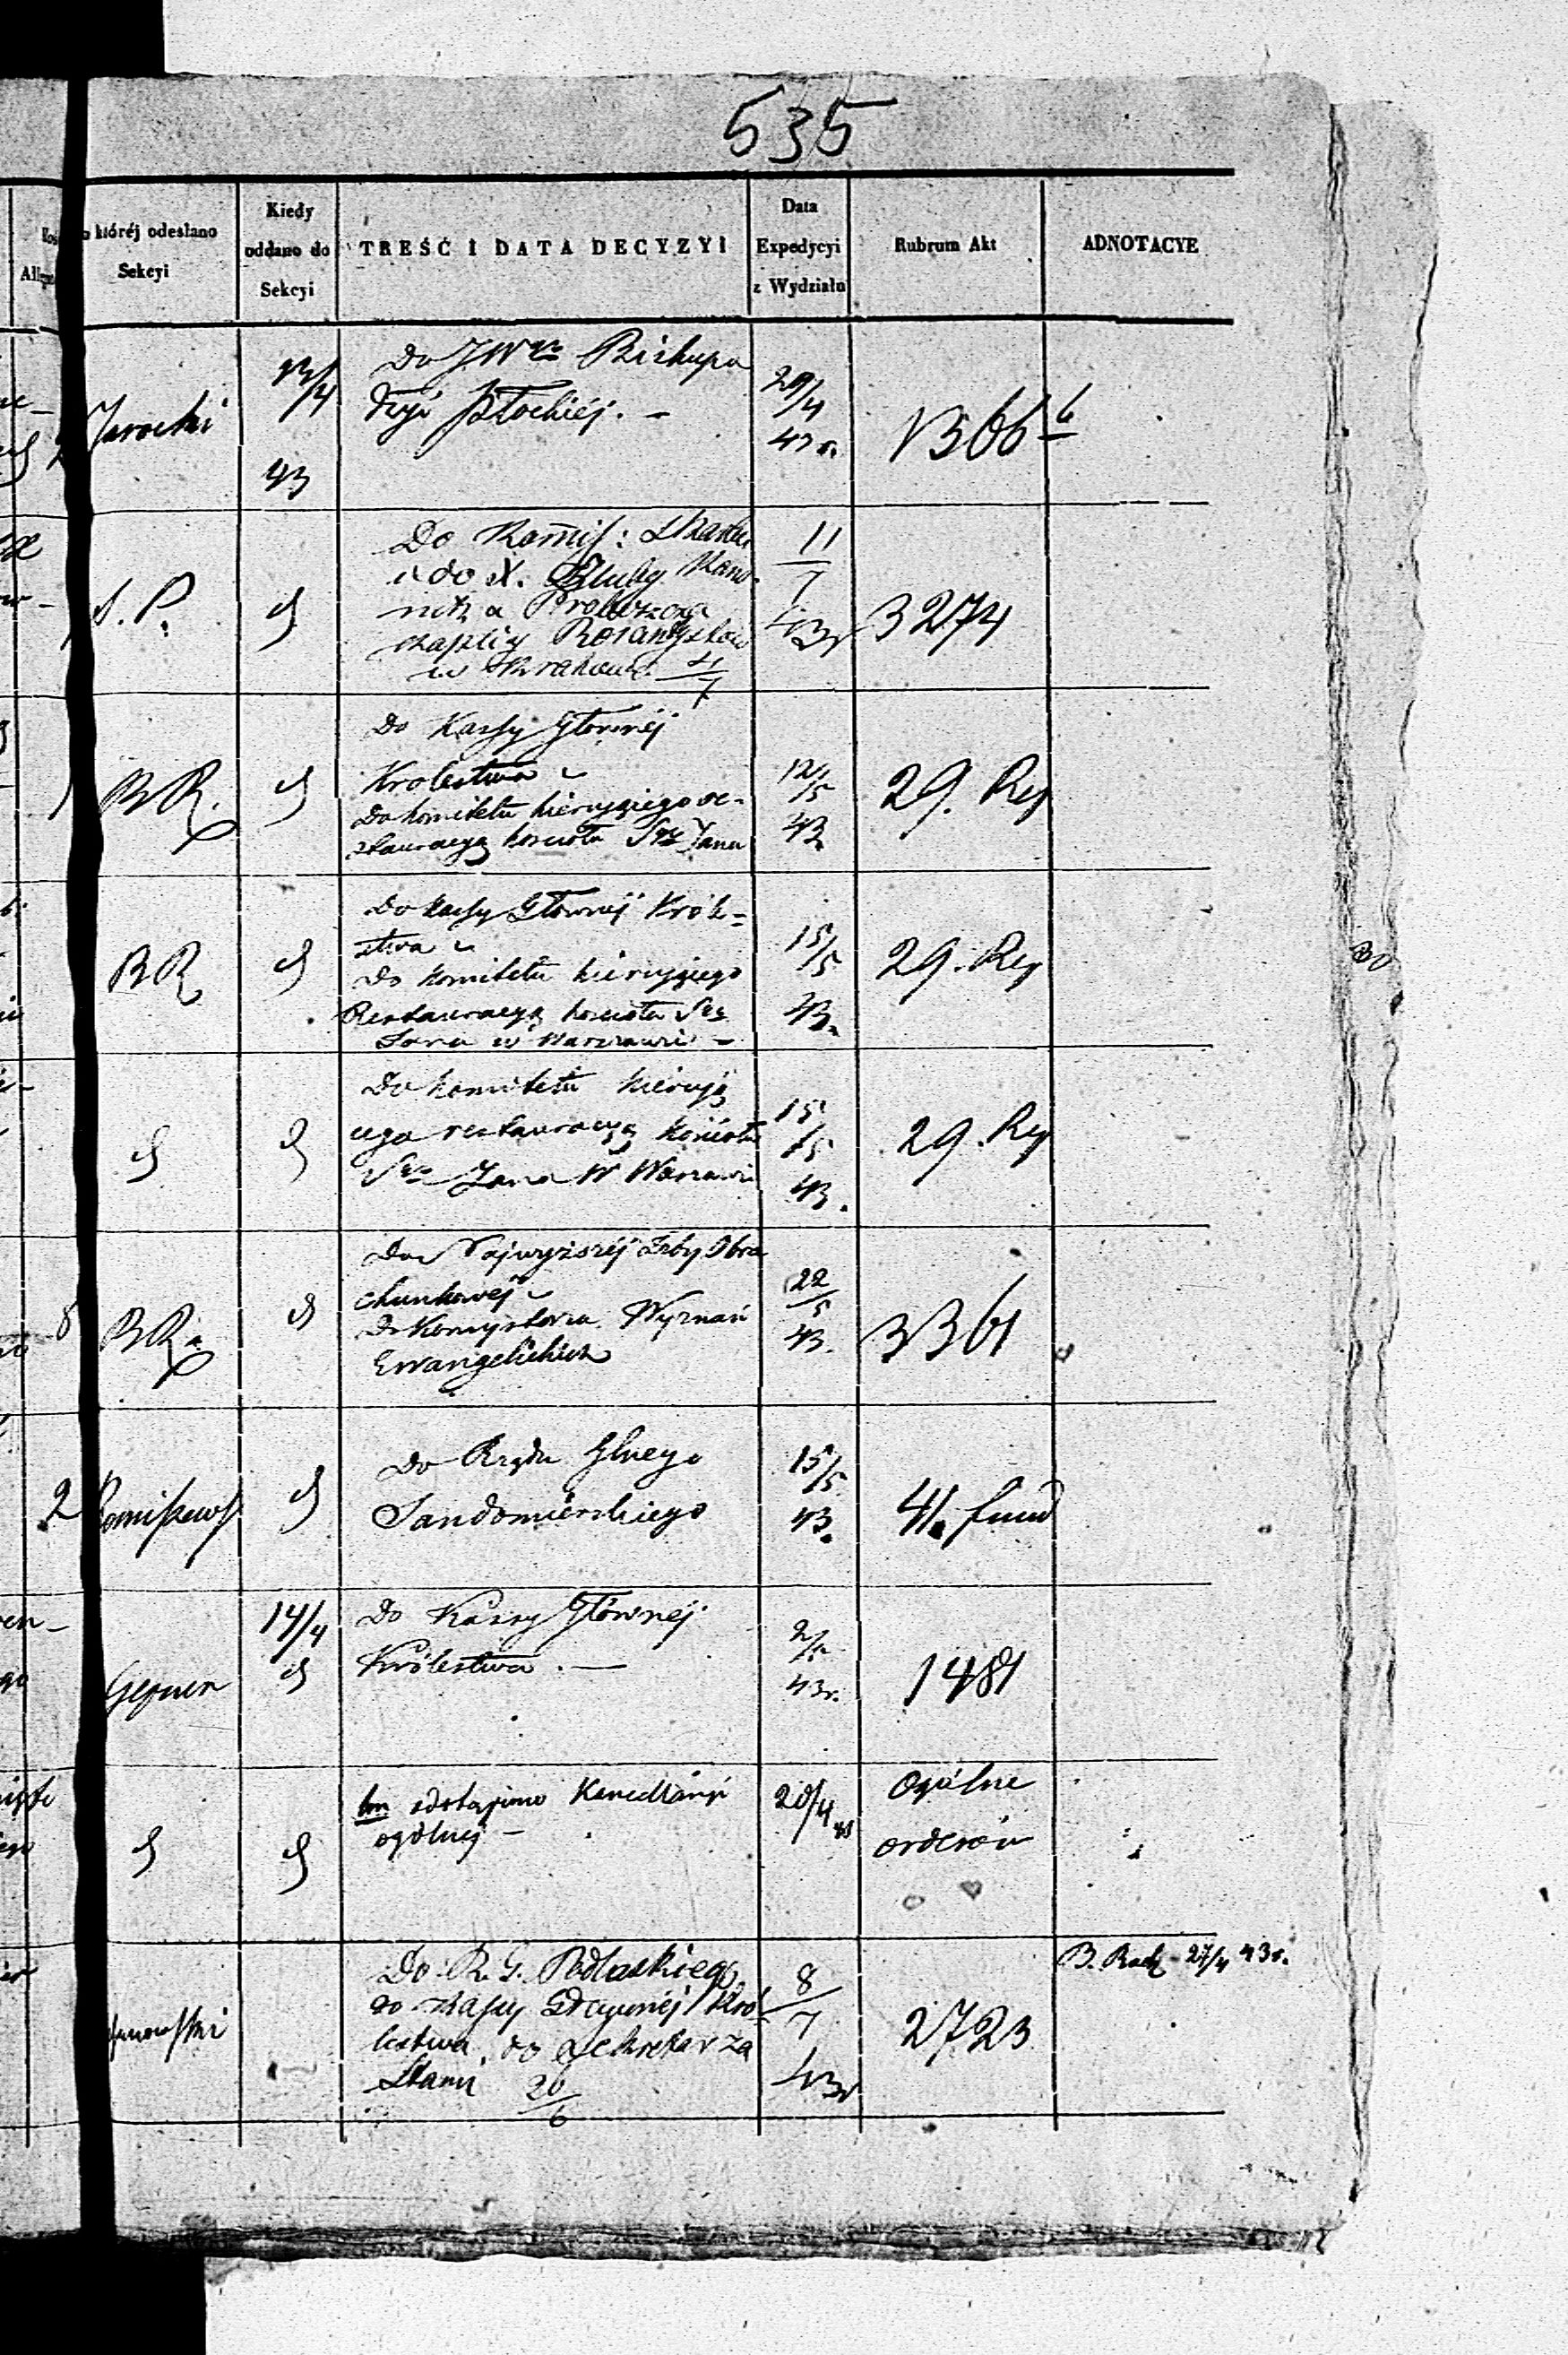 535
do któréj odesłano
Sekcyi
Kiedy
oddano do
Sekcyi
TREŚĆ I DATA DECYZYI
Data
Expedycyi
z Wydziału
Rubrum Akt
ADNOTACYE
Jarocki
13/4
43
Do JWgo Biskupa
Dyi Płockiéj. —
29/4
43 r.
1366 b
S. P.
d
Do Kommis: Skarbu
i do X. Kano-
nika Proboszcza
kaplicy
w Krakowie 4/7
11/7
43r
3274
BR.
d
Do Kassy Głownéj
Krolestwa i
Do komitetu kierującego re-
stauracyą kościoła Sgo Jana
12/5
43.
29. Rey
BR
d
Do kassy Głownej Króle=
stwa i
Do komitetu kierującego
Restauracyą kościoła Sgo
Jana w Warszawie —
15/5
43.
29. Rey
d
d
Do komitetu kierują
cego restauracyą kościoła
Sgo Jana W Warszawie
15/5
43.
29. Rey
8
BR.
d
Do Najwyższéj Izby Obra
chunkowéj i
Do Konsystorza Wyznań
Ewangelickich
22/5
43.
3361
2
d
Do Rządu Glnego
Sandomierskiego
15/5
43.
41. fund
Gepner
14/4
d
Do Kassy Głównéj
Królestwa. —
43r.
1481
d
d
Kancellaryi
ogólnej —
20/4 43
Ogólne
orderów
Do R. G. Podlaskiego,
do Kassy Głównéj Kró
lestwa, do Sekretarza
Stanu 20/6
8/7
43r
2723
B. Rach - 27/4 43r.